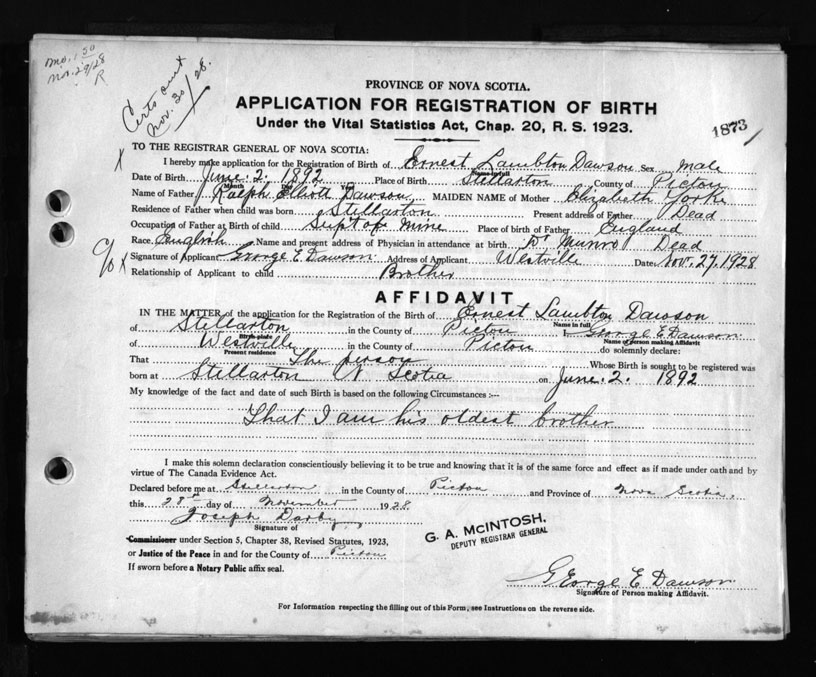 mo. 1.50
Nov. 29/28
R
Certs out
Nov. 30/28.
PROVINCE OF NOVA SCOTIA.
APPLICATION FOR REGISTRATION OF BIRTH
Under the Vital Statistics Act, Chap. 20, R. S. 1923.
1873/
TO THE REGISTRAR GENERAL OF NOVA SCOTIA:
x
I hereby make application for the Registration of Birth of Ernest Lambton Dawson Sex male
Name in full
Date of Birth June. 2. 1892 Place of Birth Stellarton County of Picton
Month Day Year
Name of Father Ralph Elliott Dawson MAIDEN NAME of Mother Elizabeth Yorke
Residence of Father when child was born Stellarton Present address of Father Dead
Occupation of Father at Birth of child Supt of Mine Place of birth of Father England
Race English Name and present address of Physician in attendance at birth Dr Munro Dead
c/o x Signature of Applicant George E Dawson Address of Applicant Westville Date Nov. 27, 1928
Relationship of Applicant to child Brother
AFFIDAVIT
IN THE MATTER of the application for the Registration of the Birth of Ernest Lambton Dawson
Name in full
of Stellarton in the County of Picton I, George E Dawson
Birth-place Name of person making Affidavit
of Westville in the County of Picton do solemnly declare:
Present residence
That The person Whose Birth is sought to be registered was
born at Stellarton N Scotia on June. 2. 1892
My knowledge of the fact and date of such Birth is based on the following Circumstances :--
That I am his oldest brother
I make this solemn declaration conscientiously believing it to be true and knowing that it is of the same force and effect as if made under oath and by
virtue of The Canada Evidence Act.
Declared before me at Stellarton in the County of Picton and Province of Nova Scotia,
this 28th day of November 1928.
Joseph Darby
Signature of
Commissioner under Section 5, Chapter 38, Revised Statutes, 1923,
or Justice of the Peace in and for the County of Picton
If sworn before a Notary Public affix seal.
G. A. McINTOSH,
DEPUTY REGISTRAR GENERAL
George E Dawson
Signature of Person making Affidavit.
For Information respecting the filling out of this Form, see Instructions on the reverse side.